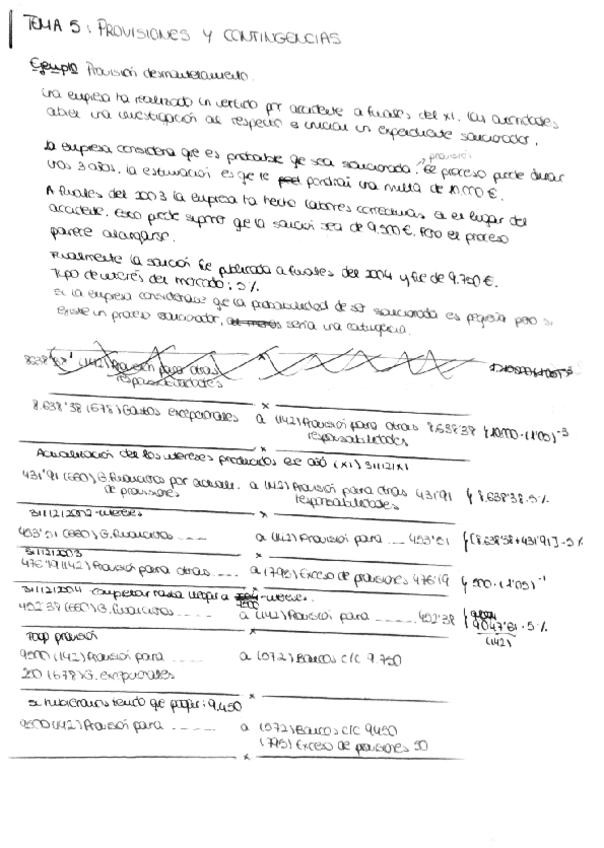 TEMA 5: PROVISIONES Y CONTINGENCIAS
Ejemplo Provisión desmantelamiento.
Una empresa ha realizado un vertido por accidente a finales del X1. Las autoridades
abren una investigación al respecto e inician un expediente sancionador.
provisión
La empresa considera que es probable que sea sancionada. El proceso puede durar
unos 3 años. La estimación es que le pondrán una multa de 10.000 €.
A finales del 2003 la empresa ha hecho labores correctivas en el lugar del
accidente. Esto puede suponer que la sanción sea de 9.500 €. Pero el proceso
parece alargarse.
Finalmente la sanción fue publicada a finales del 2004 y fue de 9.750 €.
Tipo de interés del mercado: 5%
Si la empresa considerase que la probabilidad de ser sancionada es pequeña pero si
existe un proceso sancionador, sería una contingencia.
(142) Provisión para otras
responsabilidades
x
8.638'38 (678) Gastos excepcionales a (142) Provisión para otras 8.638'38 10.000·(1'05)⁻³
responsabilidades
x
Actualización de los intereses producidos ese año (X1) 31/12/X1
431'91 (660) G. financieros por actuali. a (142) Provisión para otras 431'91 8.638'38·5%
de provisiones responsabilidades
31/12/2002 - intereses x
453'51 (660) G. financieros ---- a (142) Provisión para ---- 453'51 [8.638'38+431'91]·5%
31/12/2003 x
476'19 (142) Provisión para otras ---- a (795) Exceso de provisiones 476'19 500·(1'05)⁻¹
31/12/2004 completar hasta llegar a 9500 - intereses. x
452'38 (660) G. financieros ---- a (142) Provisión para ---- 452'38 9047'61·5%
(142)
Pago provisión x
9500 (142) Provisión para ---- a (572) Bancos c/c 9.750
250 (678) G. excepcionales
x
Si hubiéramos tenido que pagar: 9.450
9500 (142) Provisión para ---- a (572) Bancos c/c 9450
(795) Exceso de provisiones 50
x